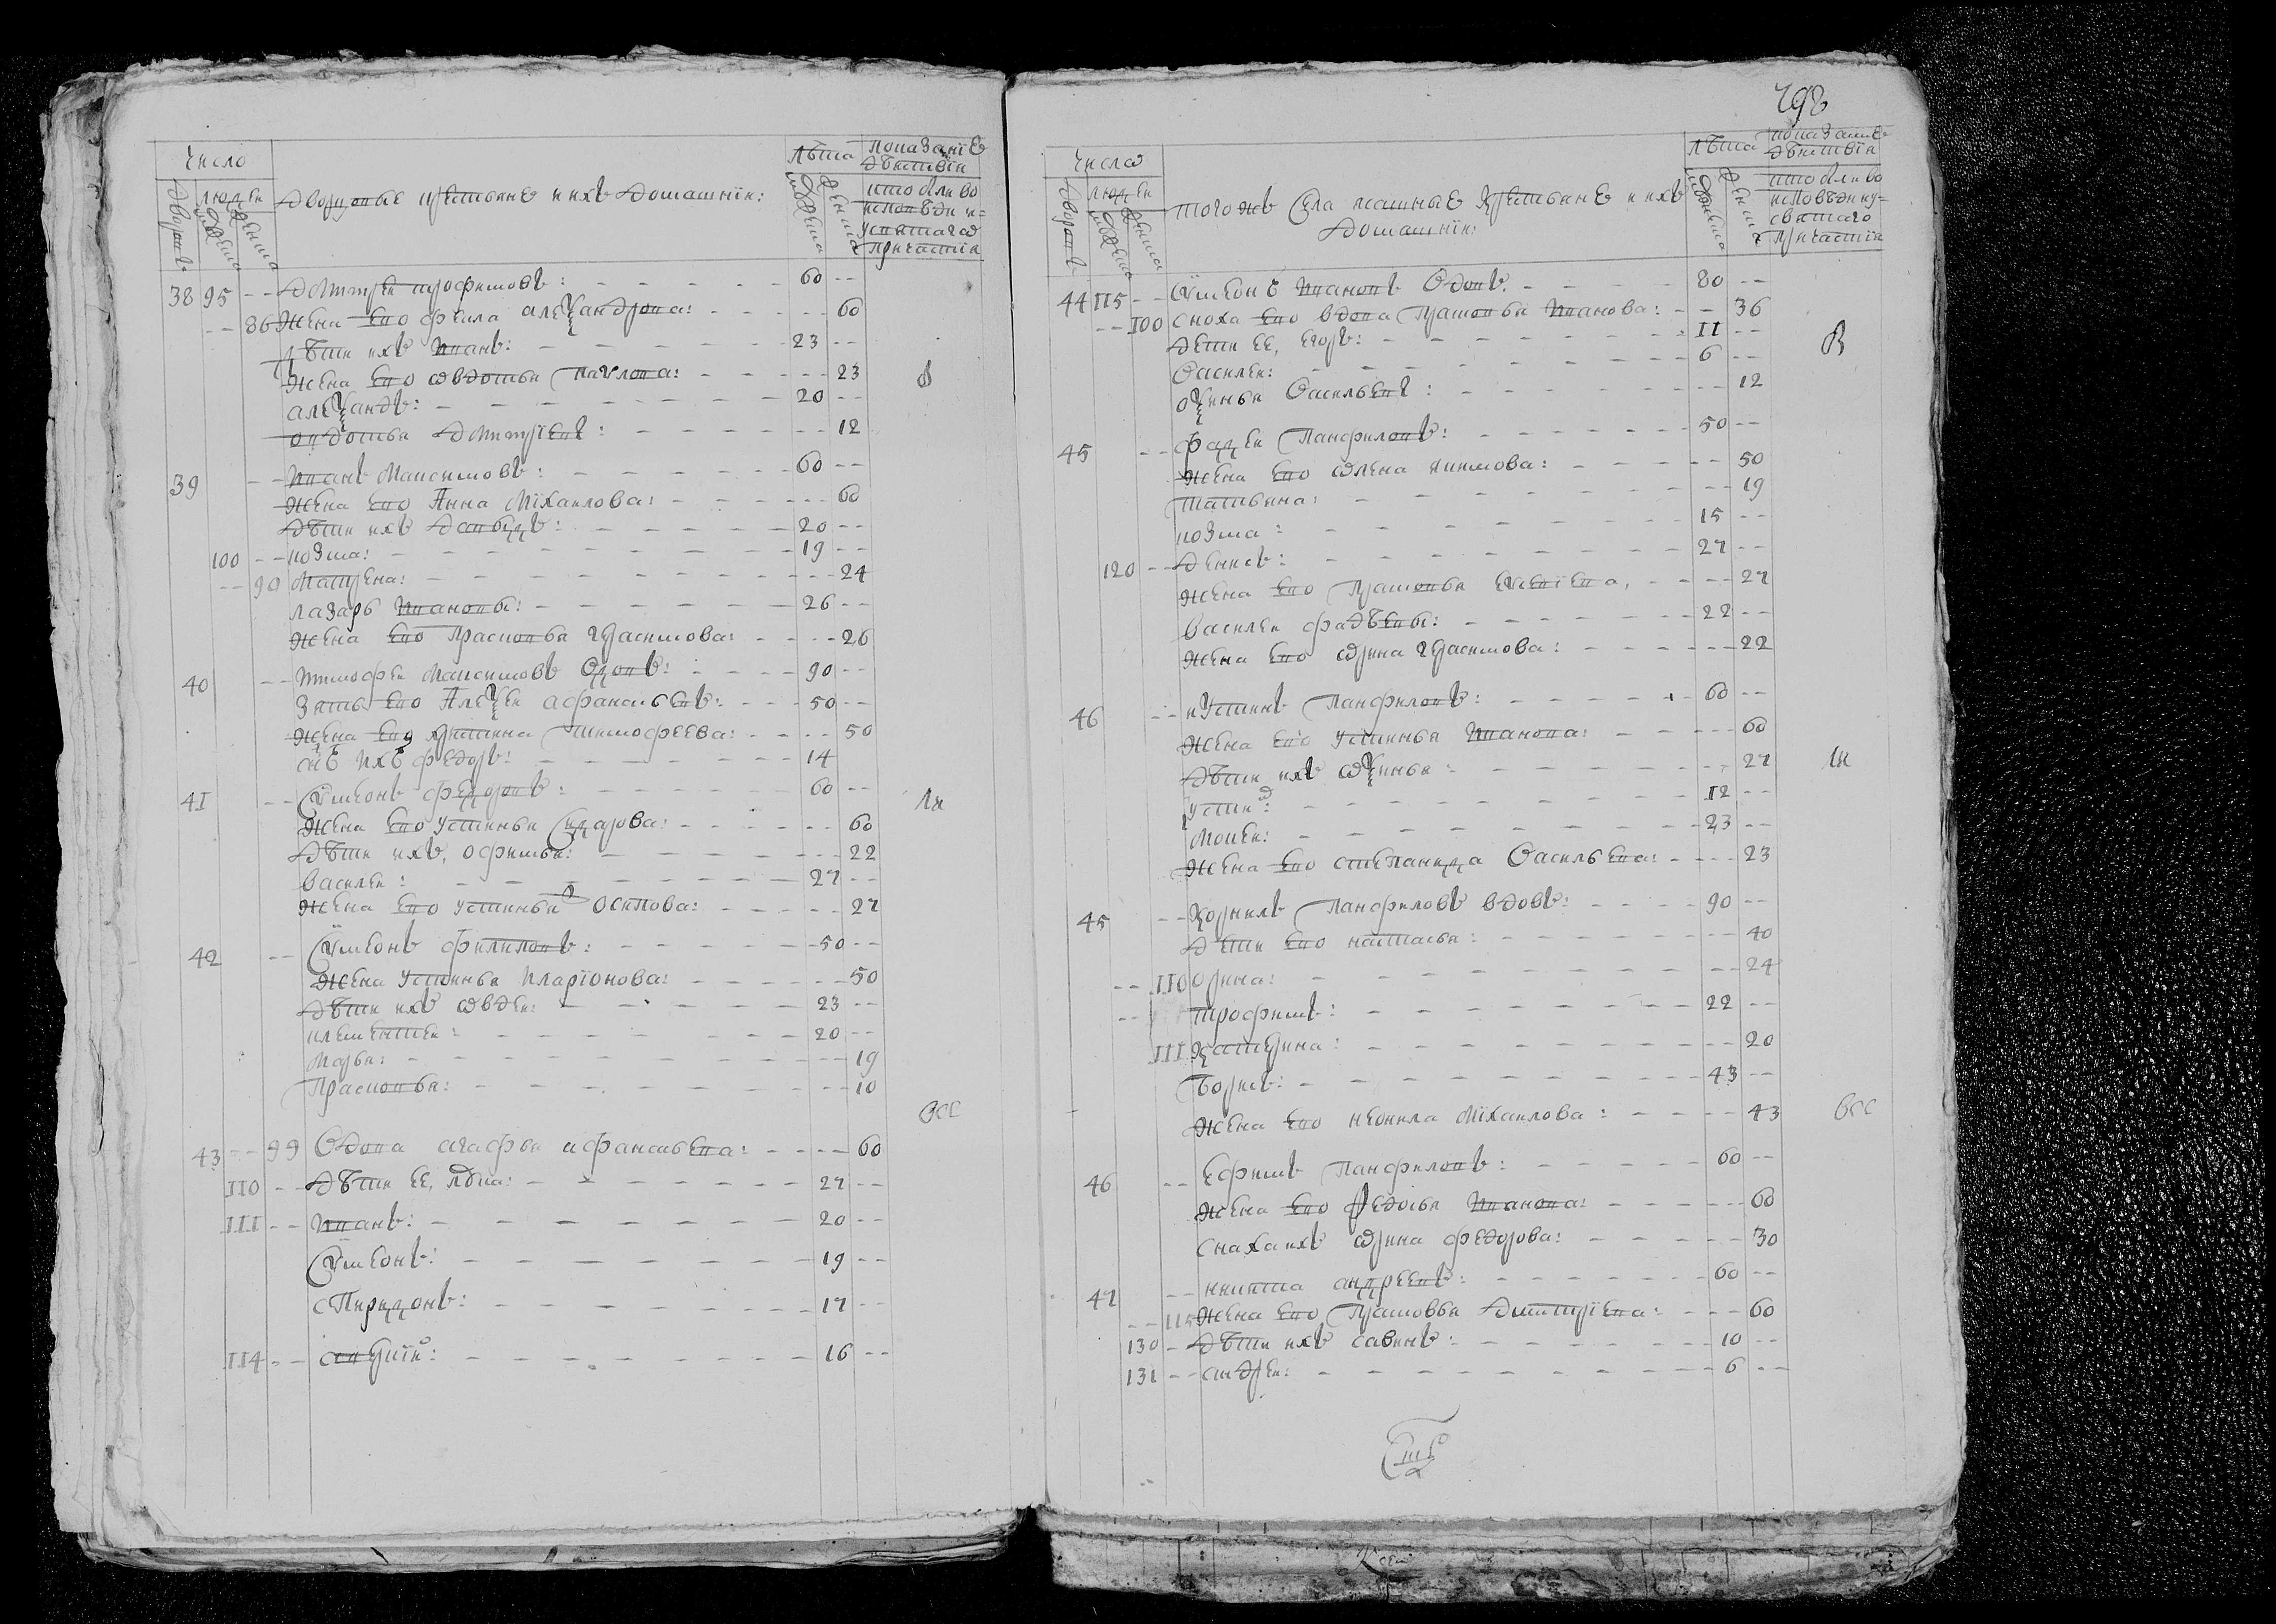 число
дворовъ
людеи
мужеска
женска
Дворцовые крестьяне и ихъ домашнїи:
лѣта
мужеска
женска
показанїе
дѣиствїя
кто былъ во
исповѣди и
у святаго
причастїя
38 95 -- Дмитреи трофимовъ: 60 --
-- 86 жена ево феkла алеѯандрова: 60
дѣти ихъ иванъ: 23 --
жена ево ѡвдотья павлова: 23
алеѯандръ: 20 --
овдотья дмитрїева: 12
39 -- иванъ маѯимовъ: 60 --
жена ево Анна михаилова: 60
дѣти ихъ давыдъ: 20 --
100 -- козма: 19 --
-- 90 матрена: 24
лазарь ивановъ: 26 --
жена ево прасковья герасимова: 26
40 -- тимофеи максимовъ вдовъ: 90 --
зять ево Алеѯеи афанасьевъ: 50 --
жена ево кристина тимофеева: 50
сн҃ъ ихъ федоръ: 14
41 -- Сѵмеонъ федоровъ: 60 --
жена ево устинья сидарова: 60
дѣти ихъ, офимья: 22
василеи: 27 --
жена ево устинья осипова: 27
42 -- Сѵмеонъ филиповъ: 50 --
жена устинья иларїонова: 50
дѣти ихъ ѡвдеи: 23 --
климентеи: 20 --
марья: 19
Прасковья: 10
всѣ
43 -- 99 Вдова агафья афанасьева: 60
110 -- дѣти ее, лѣва: 27 --
111 -- иванъ: 20 --
Сѵмеонъ: 19 --
спиридонъ: 17 --
114 -- савергїи: 16 --
798
числа
дворовъ
людеи
мужеска
женска
того жъ села ясашные крестьяне и ихъ
домашнїи:
лѣта
мужеска
женска
показание
дѣиствїя
кто былъ во
исповѣди и у
святаго
причастїя
44 115 -- Сѵмеонъ ивановъ вдовъ: 80 --
-- 100 сноха ево вдова прасковья иванова: 36
дети ее, егоръ: 11 --
василеи: 6 --
оѯинья васильева: 12
45 -- фадеи панфиловъ: 50 --
жена ево ѡлена якимова: 50
татьяна: 19
козма: 15 --
120 -- денисъ: 27 --
жена ево прасковья евсевїева, 27
василеи фадѣевъ: 22 --
жена ево ѡрина герасимова: 22
46 -- иустинъ панфиловъ: 60 --
жена ево устинья иванова: 60
дѣти ихъ ѡѯинья: 27
устинъ: 12 --
мокеи: 23 --
жена ево степанида васильева: 23
45 -- Корнилъ панфиловъ вдовъ: 90 --
дѣти ево настасья: 40
-- 110 орина: 24
-- трофимъ: 22 --
111 катерина: 20
борисъ: 43 --
жена ево неонила михаилова: 43
всѣ
46 -- Ефимъ панфиловъ: 60 --
жена ево федосья иванова: 60
снаха ихъ ѡрина федорова: 30
47 -- никита андреевъ: 60 --
-- 115 жена ево прасковья дмитрїева: 60
130 -- дѣти ихъ савинъ: 10 --
131 -- андреи: 6 --